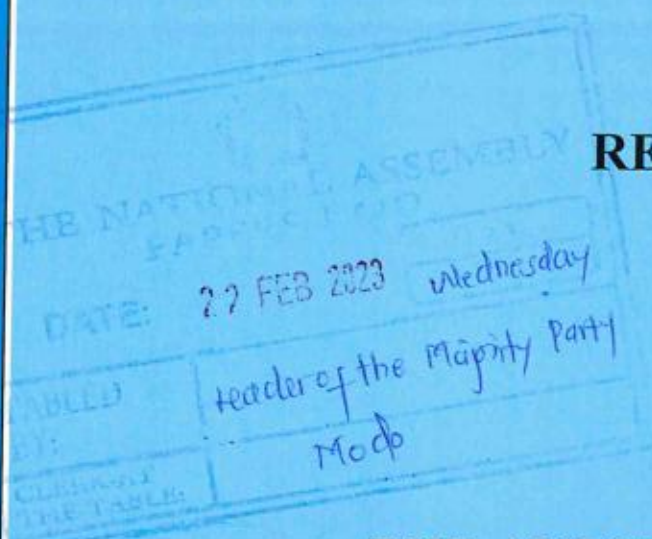 RE
HE NATIONAL ASSEMBLY
PAPERS LAID
DATE: 22 FEB 2023 Wednesday
TABLED Leader of the Majority Party
BY:
CLERK-AT
THE-TABLE: